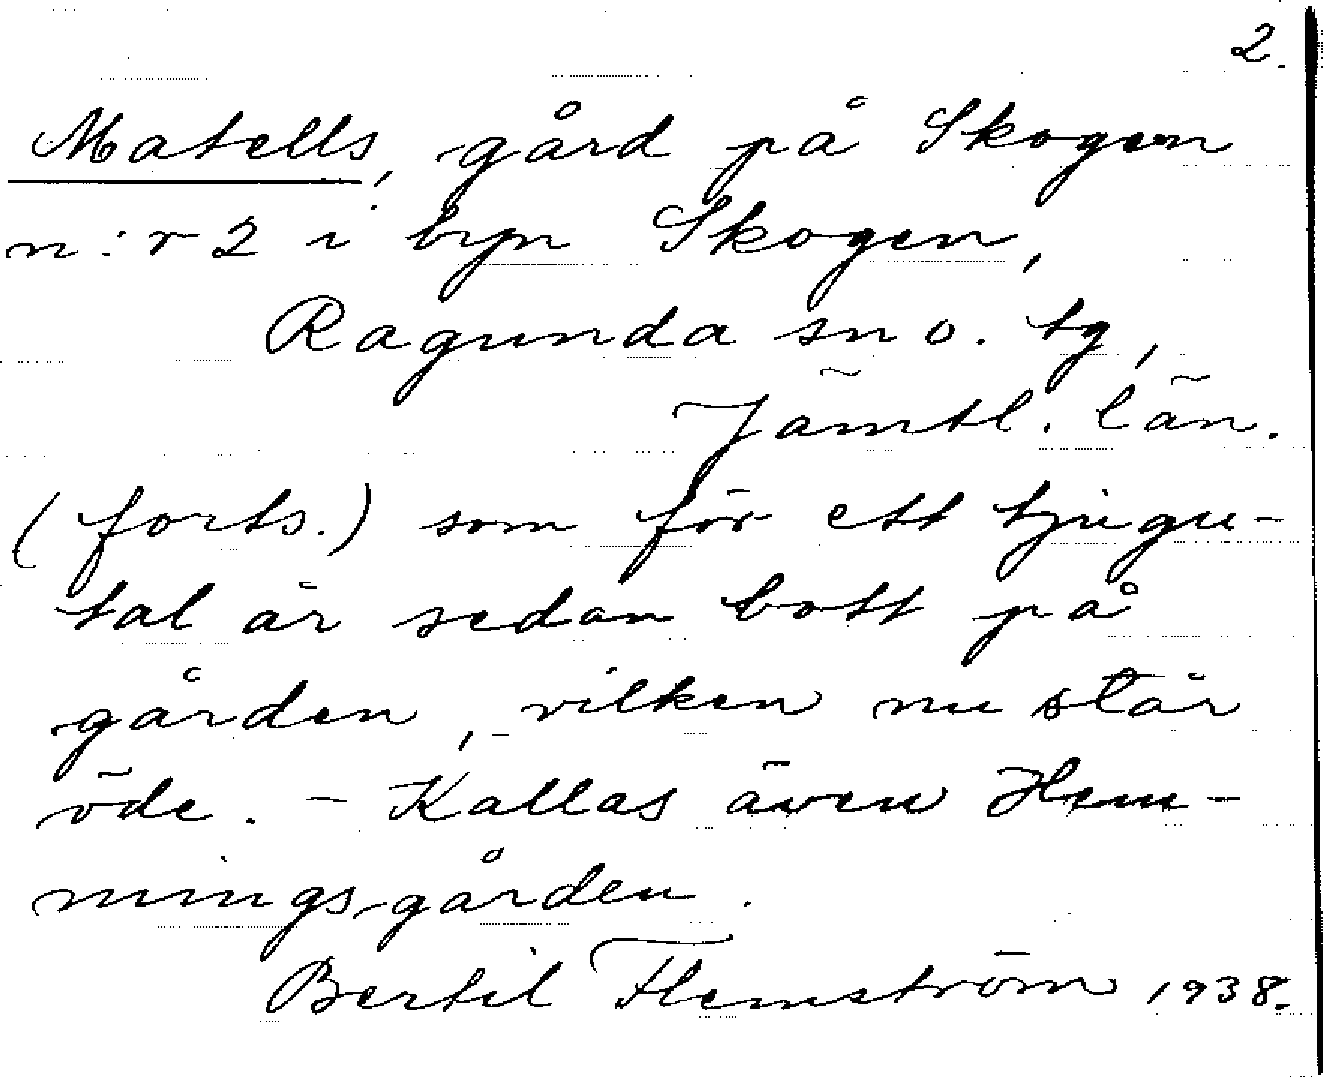 2.
Matells, gård på Skogen
n:r 2 i byn Skogen,
Ragunda sn o. tg,
Jämtl. län.
(forts.) som för ett tjugu-
tal år sedan bott på
gården, vilken nu står
öde. - Kallas även Hem-
mingsgården.
Bertil Flemström 1938.